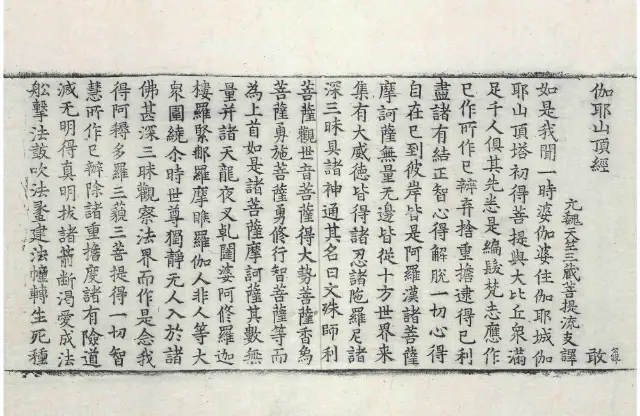 伽耶山頂經
元魏天竺三藏菩提流支譯 敢
如是我聞一時婆伽婆住伽耶城伽
耶山頂塔初得菩提與大比丘衆滿
足千人俱其先悉是編髮梵志應作
已作所作已辦弃捨重擔逮得已利
盡諸有結正智心得解脫一切心得
自在已到彼岸皆是阿羅漢諸菩薩
摩訶薩無量无邊皆從十方世界来
集有大威德皆得諸忍諸陁羅尼諸
深三昧具諸神通其名曰文殊師利
菩薩觀世音菩薩得大勢菩薩香象
菩薩勇施菩薩勇修行智菩薩等而
為上首如是諸菩薩摩訶薩其數無
量并諸天龍夜叉乹闥婆阿修羅迦
樓羅緊那羅摩睺羅伽人非人等大
衆圍繞尒時世尊獨靜无人入於諸
佛甚深三昧觀察法界而作是念我
得阿耨多羅三藐三菩提得一切智
慧所作已辦除諸重擔度諸有險道
滅无明得真明拔諸箭斷渴愛成法
舩擊法鼓吹法䗍建法幢轉生死種